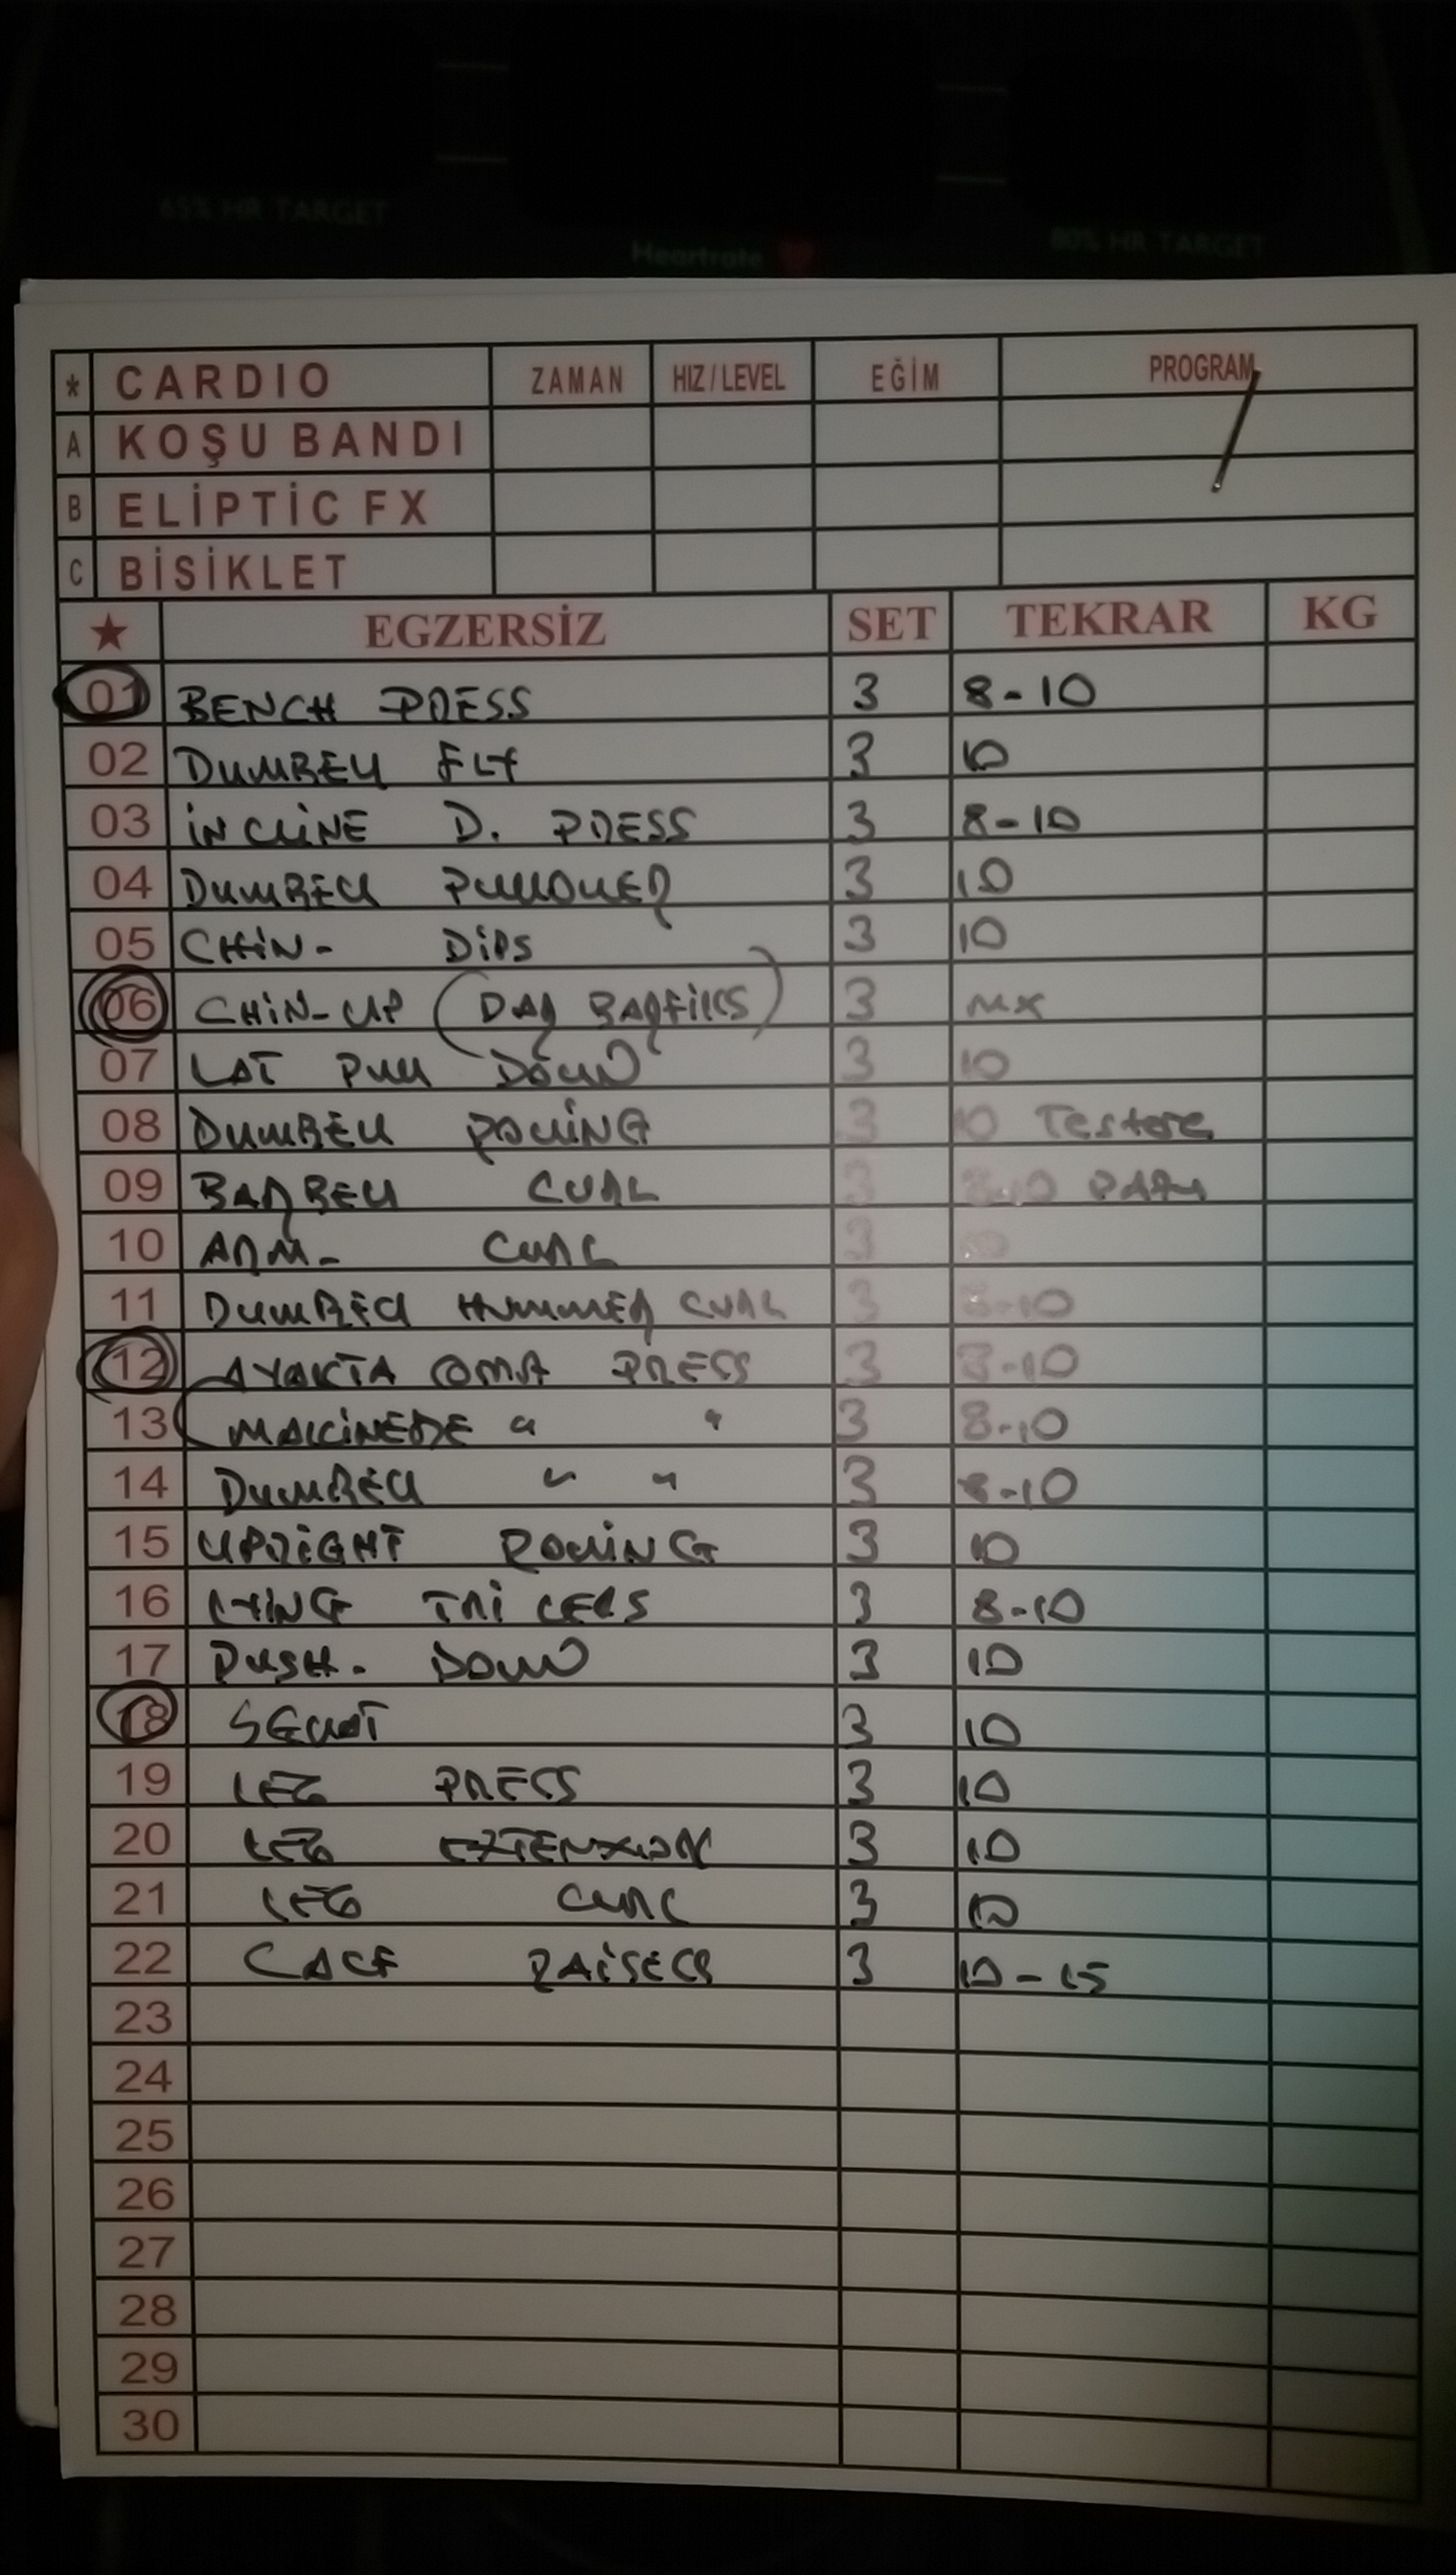 65% HR TARGET
Heartrate
80% HR TARGET
* CARDIO ZAMAN HIZ / LEVEL EĞİM PROGRAM
A KOŞU BANDI
B ELİPTİC FX
C BİSİKLET
★ EGZERSİZ SET TEKRAR KG
01 BENCH PRESS 3 8-10
02 DUMBELL FLY 3 10
03 İNCLİNE D. PRESS 3 8-10
04 DUMBELL PULLOVER 3 10
05 CHİN- DİPS 3 10
06 CHİN-UP (DAR BARFİKS) 3 MX
07 LAT PULL DOWN 3 10
08 DUMBELL ROWİNG 3 10 Testere
09 BARBELL CURL 3 8-10
10 ARM- CURL 3 10
11 DUMBELL HUMMER CURL 3 8-10
12 AYAKTA OMA PRESS 3 8-10
13 MAKİNEDE " " 3 8-10
14 DUMBELL " " 3 8-10
15 UPRİGHT ROWİNG 3 10
16 LYİNG TRİCEPS 3 8-10
17 PUSH- DOWN 3 10
18 SQUAT 3 10
19 LEG PRESS 3 10
20 LEG EXTENXION 3 10
21 LEG CURL 3 10
22 CALF RAİSES 3 10-15
23
24
25
26
27
28
29
30